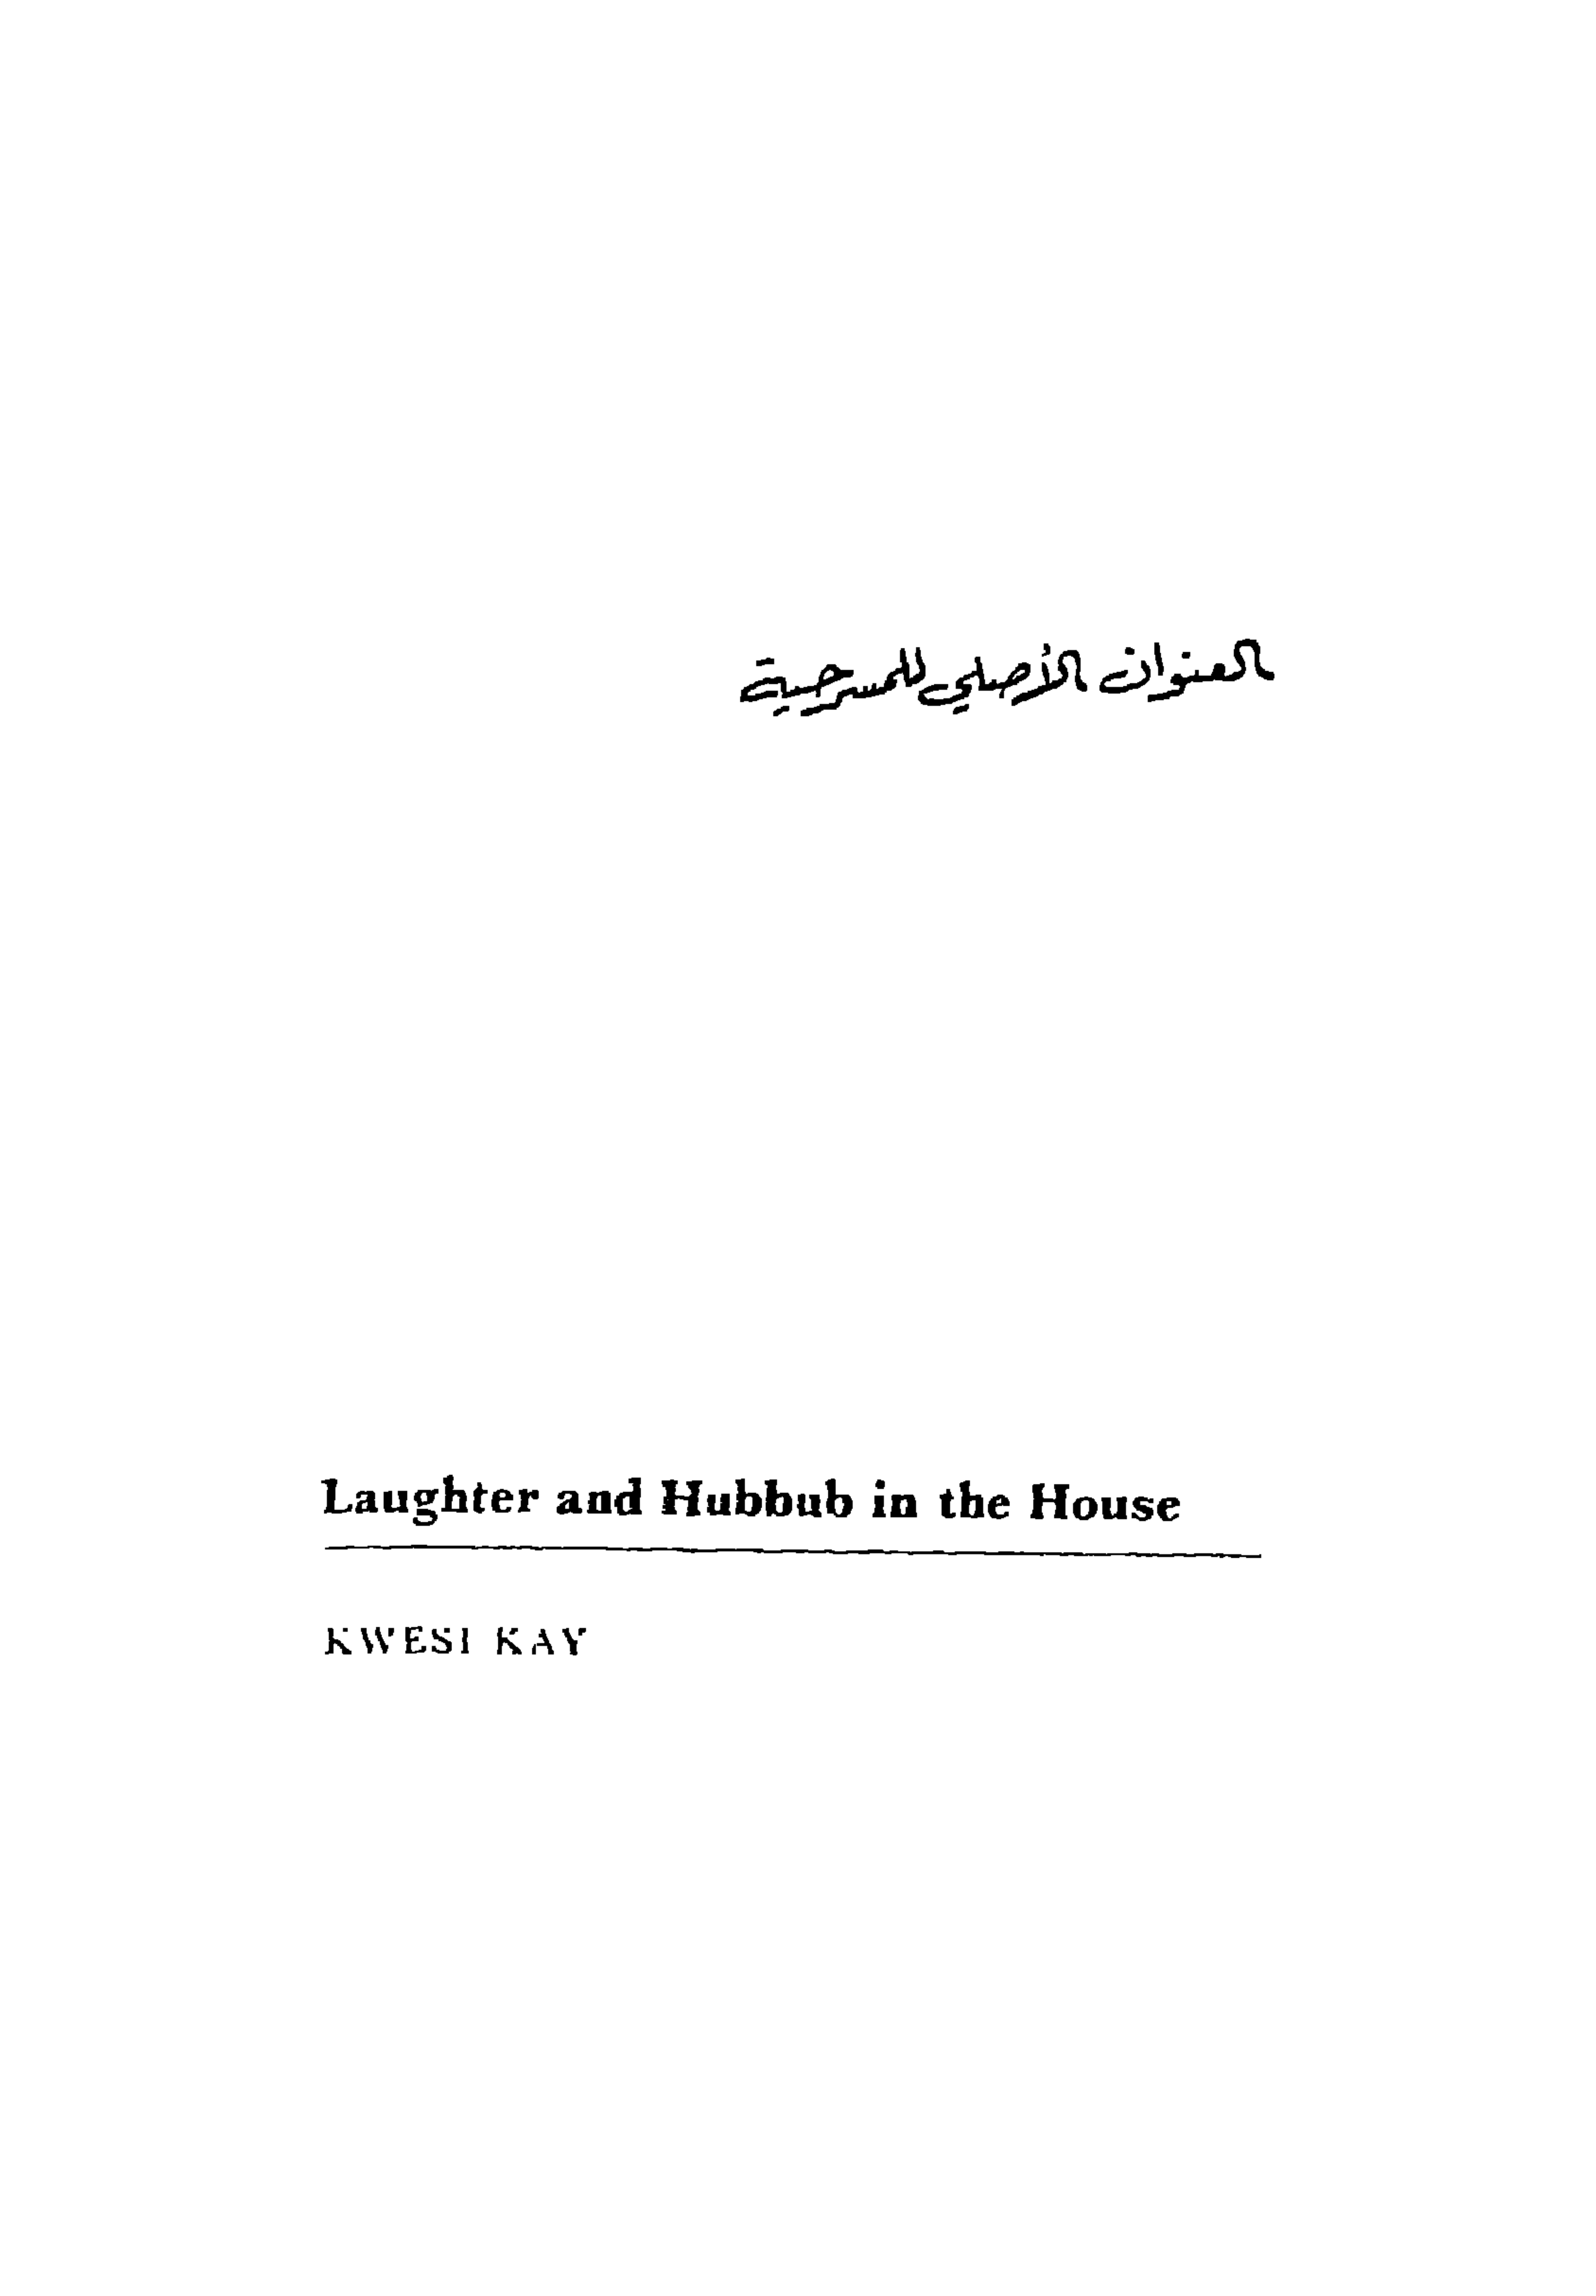 العنوان الأصلي للمسرحية
Laughter and Hubbub in the House
KWESI KAY